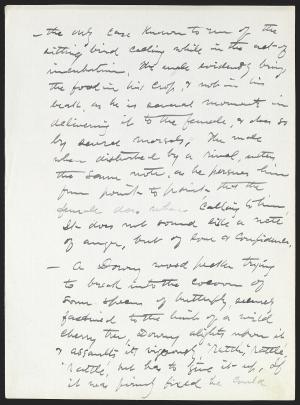 – the only case known to me of the
sitting bird calling while in the act of
incubation. The male evidently brings
the food in his crop, & not in his
beak, as he is several moments in
delivering it to the female, & does so
by several morsels. The male
when disturbed by a rival, utters
the same note, as he pursues him
from point to point that the
female does when calling to him.
It does not sound like a note
of anger, but of love & confidence.
– A Downy woodpecker trying
to break into the cocoon of
some species of butterfly securely
fastened to the limb of a wild
cherry tree, Downy alights upon it
& assaults it, vigorously 'rattle, rattle,
rattle', but has to give it up. If
it was firmly fixed he could